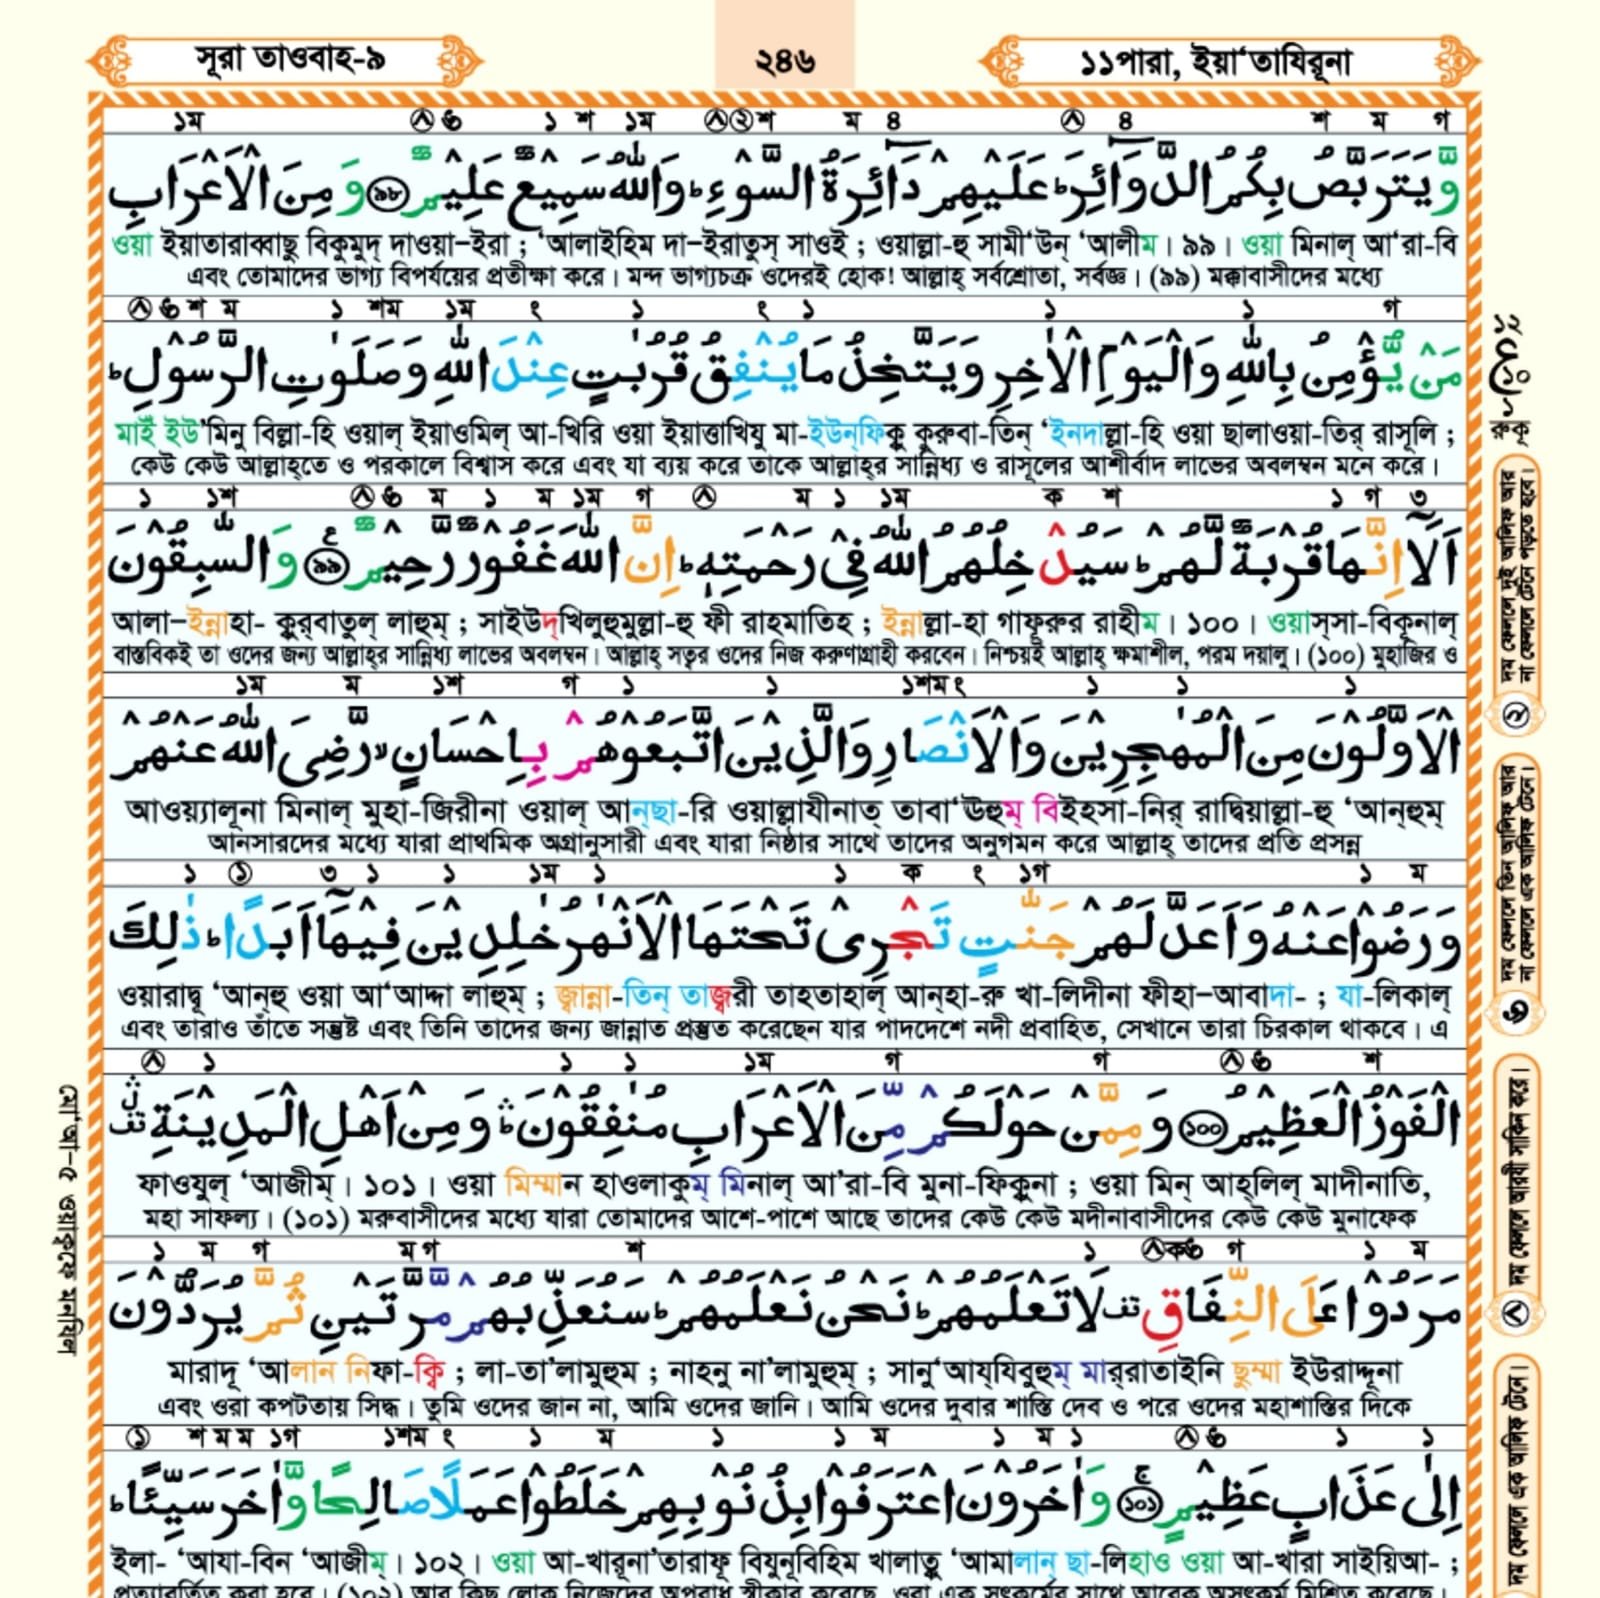 সূরা তাওবাহ-৯
২৪৬
১১পারা, ইয়া‘তাযিরূনা
وَّيَتَرَبَّصُ بِكُمُ الدَّوَآئِرَ ؕ عَلَيْهِمْ دَآئِرَةُ السَّوْءِ ؕ وَاللّٰهُ سَمِيْعٌ عَلِيْمٌ ﴿٩٨﴾ وَمِنَ الْاَعْرَابِ
ওয়া ইয়াতারাব্বাছু বিকুমুদ্ দাওয়া–ইরা ; ‘আলাইহিম দা–ইরাতুস্ সাওই ; ওয়াল্লা-হু সামী‘উন্ ‘আলীম। ৯৯। ওয়া মিনাল্ আ‘রা-বি
এবং তোমাদের ভাগ্য বিপর্যয়ের প্রতীক্ষা করে। মন্দ ভাগ্যচক্র ওদেরই হোক! আল্লাহ্ সর্বশ্রোতা, সর্বজ্ঞ। (৯৯) মক্কাবাসীদের মধ্যে
مَنْ يُّؤْمِنُ بِاللّٰهِ وَالْيَوْمِ الْاٰخِرِ وَيَتَّخِذُ مَا يُنْفِقُ قُرُبٰتٍ عِنْدَ اللّٰهِ وَصَلَوٰتِ الرَّسُوْلِ ؕ
মাইঁ ইউ’মিনু বিল্লা-হি ওয়াল্ ইয়াওমিল্ আ-খিরি ওয়া ইয়াত্তাখিযু মা-ইউন্‌ফিক্বু কুরুবা-তিন্ ‘ইনদাল্লা-হি ওয়া ছালাওয়া-তির্ রাসূলি ;
কেউ কেউ আল্লাহ্‌তে ও পরকালে বিশ্বাস করে এবং যা ব্যয় করে তাকে আল্লাহ্‌র সান্নিধ্য ও রাসূলের আশীর্বাদ লাভের অবলম্বন মনে করে।
اَلَاۤ اِنَّهَا قُرْبَةٌ لَّهُمْ ؕ سَيُدْخِلُهُمُ اللّٰهُ فِيْ رَحْمَتِهٖ ؕ اِنَّ اللّٰهَ غَفُوْرٌ رَّحِيْمٌ ﴿٩٩﴾ وَالسّٰبِقُوْنَ
আলা–ইন্নাহা- কুর্‌বাতুল্ লাহুম্ ; সাইউদ্‌খিলুহুমুল্লা-হু ফী রাহমাতিহ ; ইন্নাল্লা-হা গাফূরুর রাহীম। ১০০। ওয়াস্‌সা-বিকূনাল্
বাস্তবিকই তা ওদের জন্য আল্লাহ্‌র সান্নিধ্য লাভের অবলম্বন। আল্লাহ্ সত্বর ওদের নিজ করুণাগ্রাহী করবেন। নিশ্চয়ই আল্লাহ্ ক্ষমাশীল, পরম দয়ালু। (১০০) মুহাজির ও
الْاَوَّلُوْنَ مِنَ الْمُهٰجِرِيْنَ وَالْاَنْصَارِ وَالَّذِيْنَ اتَّبَعُوْهُمْ بِاِحْسَانٍ ۙ رَّضِيَ اللّٰهُ عَنْهُمْ
আওয়্যালূনা মিনাল্ মুহা-জিরীনা ওয়াল্ আন্‌ছা-রি ওয়াল্লাযীনাত্ তাবা‘ঊহুম্ বিইহসা-নির্ রাদ্বিয়াল্লা-হু ‘আন্‌হুম্
আনসারদের মধ্যে যারা প্রাথমিক অগ্রানুসারী এবং যারা নিষ্ঠার সাথে তাদের অনুগমন করে আল্লাহ্ তাদের প্রতি প্রসন্ন
وَرَضُوْا عَنْهُ وَاَعَدَّ لَهُمْ جَنّٰتٍ تَجْرِيْ تَحْتَهَا الْاَنْهٰرُ خٰلِدِيْنَ فِيْهَاۤ اَبَدًا ؕ ذٰلِكَ
ওয়ারাদ্বূ ‘আন্‌হু ওয়া আ‘আদ্দা লাহুম্ ; জ্বান্না-তিন্ তাজ্বরী তাহতাহাল্ আন্‌হা-রু খা-লিদীনা ফীহা–আবাদা- ; যা-লিকাল্
এবং তারাও তাঁতে সন্তুষ্ট এবং তিনি তাদের জন্য জান্নাত প্রস্তুত করেছেন যার পাদদেশে নদী প্রবাহিত, সেখানে তারা চিরকাল থাকবে। এ
الْفَوْزُ الْعَظِيْمُ ﴿١٠٠﴾ وَمِمَّنْ حَوْلَكُمْ مِّنَ الْاَعْرَابِ مُنٰفِقُوْنَ ؕۛ وَمِنْ اَهْلِ الْمَدِيْنَةِ
ফাওযুল্ ‘আজীম্। ১০১। ওয়া মিম্মান হাওলাকুম্ মিনাল্ আ'রা-বি মুনা-ফিকুনা ; ওয়া মিন্ আহ্‌লিল্ মাদীনাতি,
মহা সাফল্য। (১০১) মরুবাসীদের মধ্যে যারা তোমাদের আশে-পাশে আছে তাদের কেউ কেউ মদীনাবাসীদের কেউ কেউ মুনাফেক
مَرَدُوْا عَلَى النِّفَاقِ لَا تَعْلَمُهُمْ ؕ نَحْنُ نَعْلَمُهُمْ ؕ سَنُعَذِّبُهُمْ مَّرَّتَيْنِ ثُمَّ يُرَدُّوْنَ
মারাদূ ‘আলান নিফা-ক্বি ; লা-তা'লামুহুম ; নাহনু না'লামুহুম্ ; সানু‘আয্‌যিবুহুম্ মার্‌রাতাইনি ছুম্মা ইউরাদ্দূনা
এবং ওরা কপটতায় সিদ্ধ। তুমি ওদের জান না, আমি ওদের জানি। আমি ওদের দুবার শাস্তি দেব ও পরে ওদের মহাশাস্তির দিকে
اِلٰى عَذَابٍ عَظِيْمٍ ﴿١٠١﴾ وَاٰخَرُوْنَ اعْتَرَفُوْا بِذُنُوْبِهِمْ خَلَطُوْا عَمَلًا صَالِحًا وَّاٰخَرَ سَيِّئًا ؕ
ইলা- ‘আযা-বিন ‘আজীম্। ১০২। ওয়া আ-খারূনা’তারাফূ বিযুনূবিহিম খালাতু ‘আমালান্ ছা-লিহাও ওয়া আ-খারা সাইয়িআ- ;
প্রত্যাবর্তিত করা হবে। (১০২) আর কিছু লোক নিজেদের অপরাধ স্বীকার করেছে, ওরা এক সৎকর্মের সাথে আরেক অসৎকর্ম মিশ্রিত করেছে।